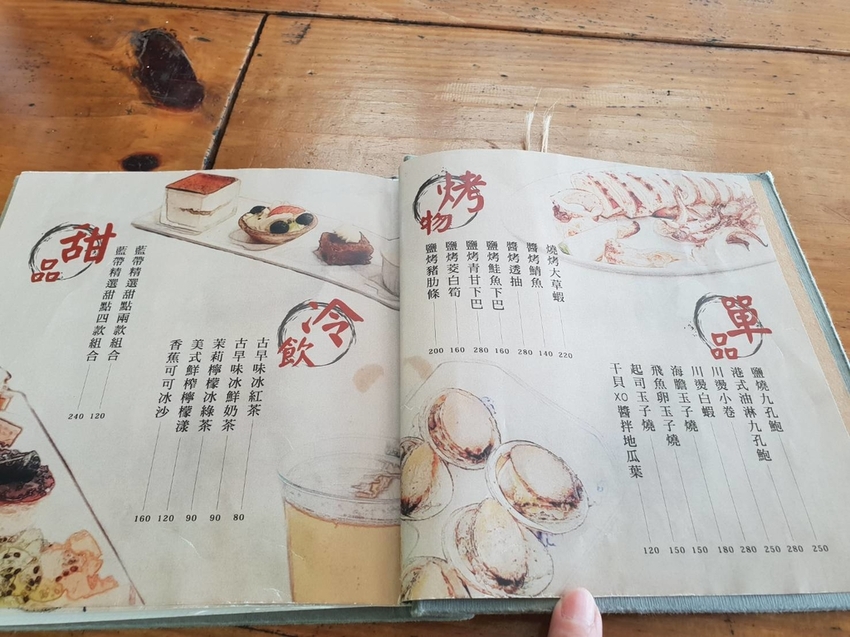 烤物
燒烤大草蝦 220
醬烤鯖魚 140
醬烤透抽 280
鹽烤鮭魚下巴 160
鹽烤青甘下巴 280
鹽烤茭白筍 160
鹽烤豬肋條 200
單品
鹽燒九孔鮑 250
港式油淋九孔鮑 280
川燙小卷 250
川燙白蝦 280
海膽玉子燒 180
飛魚卵玉子燒 150
起司玉子燒 150
干貝XO醬拌地瓜葉 120
甜品
藍帶精選甜點兩款組合 120
藍帶精選甜點四款組合 240
冷飲
古早味冰紅茶 80
古早味冰鮮奶茶 90
茉莉檸檬冰綠茶 90
美式鮮榨檸檬漾 120
香蕉可可冰沙 160